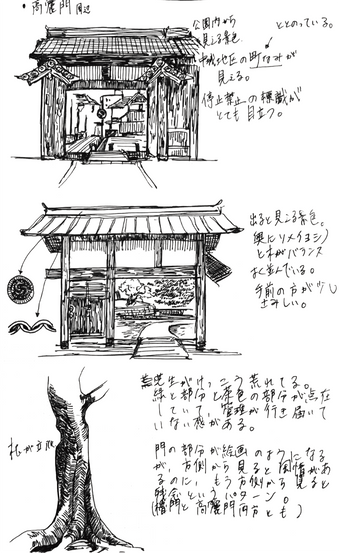 ・高麗門 周辺
公園内から
見える景色。
ととのっている。
中城地区の町なみが
見える。
停止禁止の標識が
とても目立つ。
出ると見える景色。
奥にソメイヨシノ
と木がバランス
よく並んでいる。
手前の方が少し
さみしい。
芝生がけっこう荒れてる。
緑と部分と茶色の部分が点在
していて、管理が行き届いて
いない感がある。
門の部分が絵画のようになる
が、片側から見ると風情があ
るのに、もう片側から見ると
残念というパターン。
(櫓門と高麗門両方とも)